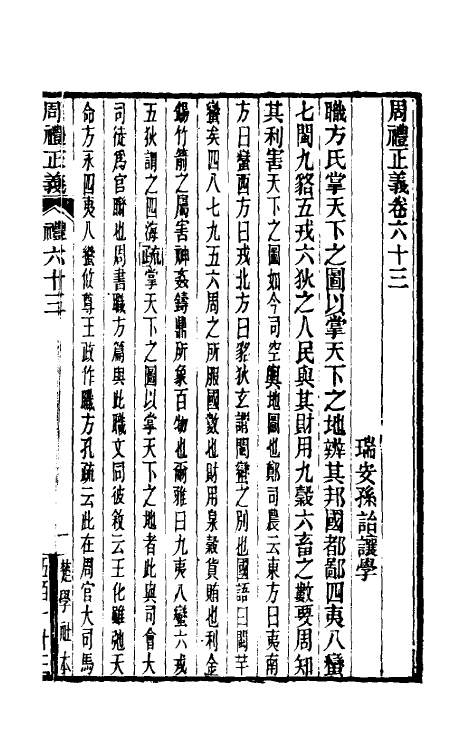 周禮正義卷六十三
瑞安孫詒讓學
職方氏掌天下之圖以掌天下之地辨其邦國都鄙四夷八蠻
七閩九貉五戎六狄之人民與其財用九穀六畜之數要周知
其利害天下之圖如今司空輿地圖也鄭司農云東方曰夷南
方曰蠻西方曰戎北方曰貉狄玄謂閩蠻之別也國語曰閩芊
蠻矣四八七九五六周之所服國數也財用泉穀貨賄也利金
錫竹箭之屬害神姦鑄鼎所象百物也爾雅曰九夷八蠻六戎
五狄謂之四海疏掌天下之圖以掌天下之地者此與司會大
司徒爲官聯也周書職方篇與此職文同彼敘云王化雖弛天
命方永四夷八蠻攸尊王政作職方孔疏云此在周官大司馬
周禮正義 禮六十三
一
楚學社本
五百一十三